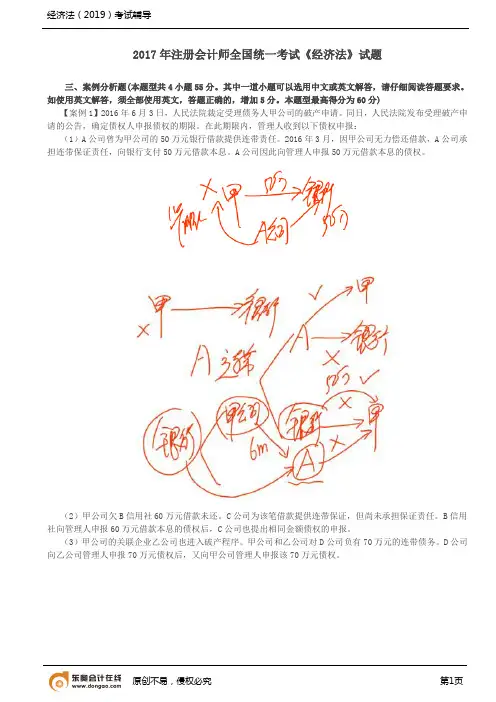 经济法（2019）考试辅导
2017年注册会计师全国统一考试《经济法》试题
三、案例分析题(本题型共4小题55分。其中一道小题可以选用中文或英文解答，请仔细阅读答题要求。
如使用英文解答，须全部使用英文，答题正确的，增加5分。本题型最高得分为60分)
【案例1】2016年6月3日，人民法院裁定受理债务人甲公司的破产申请。同日，人民法院发布受理破产申
请的公告，确定债权人申报债权的期限。在此期限内，管理人收到以下债权申报：
（1）A公司曾为甲公司的50万元银行借款提供连带责任。2016年3月，因甲公司无力偿还借款，A公司承
担连带保证责任，向银行支付50万元借款本息。A公司因此向管理人申报50万元借款本息的债权。
× 甲 50万 银行
A公司 50万
甲 银行
×
A 连带
A 甲
银行
×
50万
银行 甲公司 银行 × 甲
6m A ×
（2）甲公司欠B信用社60万元借款未还。C公司为该笔借款提供连带保证，但尚未承担保证责任。B信用
社向管理人申报60万元借款本息的债权后，C公司也提出相同金额债权的申报。
（3）甲公司的关联企业乙公司也进入破产程序。甲公司和乙公司对D公司负有70万元的连带债务。D公司
向乙公司管理人申报70万元债权后，又向甲公司管理人申报该70万元债权。
东奥会计在线
www.dongao.com
原创不易，侵权必究
第1页